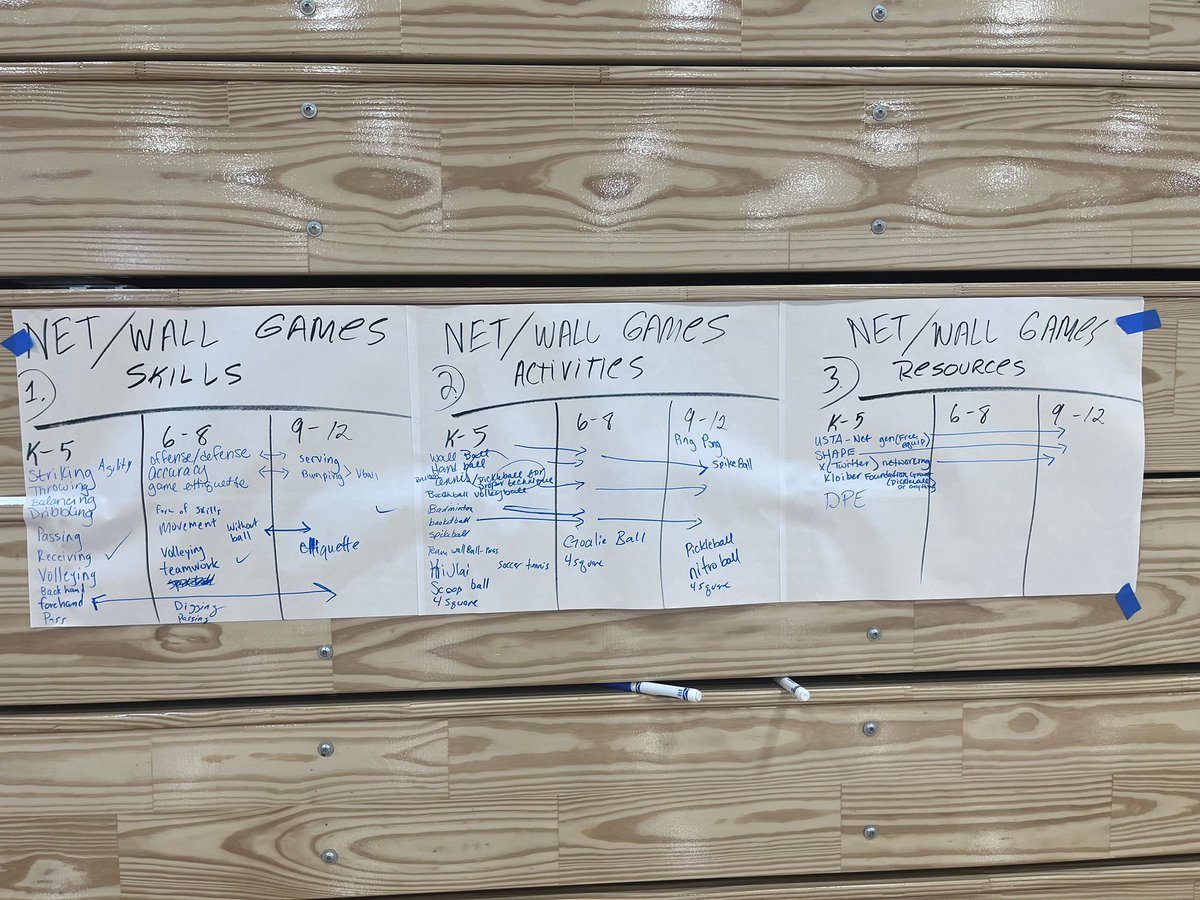 NET/WALL GAMES
SKILLS
1.
K-5
Striking Agility
Throwing
Balancing
Dribbling
Passing
Receiving
Volleying
Backhand
forehand
Pass
6-8
offense/defense
accuracy
game ettiquette
Form of skills
Movement without
ball
Volleying
teamwork
Digging
Passing
9-12
Serving
Bumping > Vball
etiquette
NET/WALL GAMES
ACTIVITIES
2.
K-5
Wall Ball
Hand ball
tennis/pickleball
proper technique
Beachball Volleyball
Badminton
basketball
spikeball
Team wall Ball-Pins
HiJlai Soccer tennis
Scoop ball
4 Square
6-8
Goalie Ball
4 Square
9-12
Ping Pong
SpikeBall
Pickleball
nitroball
4 Square
NET/WALL GAMES
RESOURCES
3.
K-5
USTA-Net gen (Free
equip)
SHAPE
X (Twitter) networking
Kloiber Foundation Grant
(Pickleball
or anything)
DPE
6-8
9-12